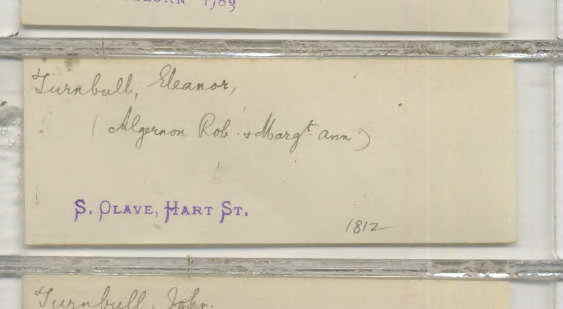 1789
Turnbull, Eleanor,
(Algernon Rob. & Margt. Ann)
S. Olave, Hart St.
1812
Turnbull, John.